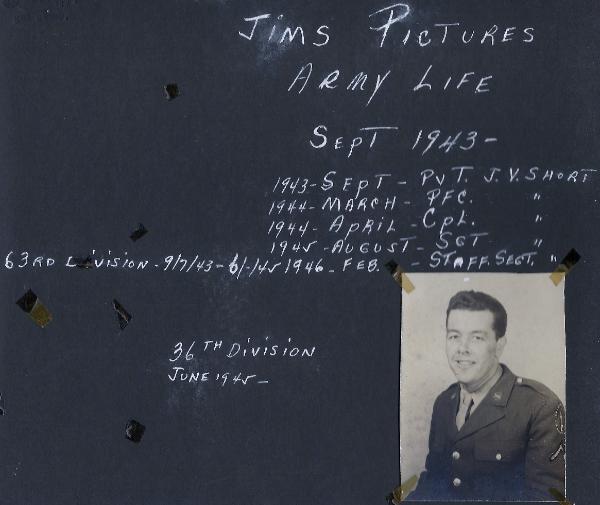 JIMS PICTURES
ARMY LIFE
SEPT 1943-
1943-SEPT - PVT. J.V. SHORT
1944-MARCH - PFC. "
1944-APRIL - CPL. "
1945-AUGUST - SGT "
63RD DIVISION - 9/7/43 - 6/-/45 1946 - FEB. - STAFF. SEGT. "
36TH DIVISION
JUNE 1945-